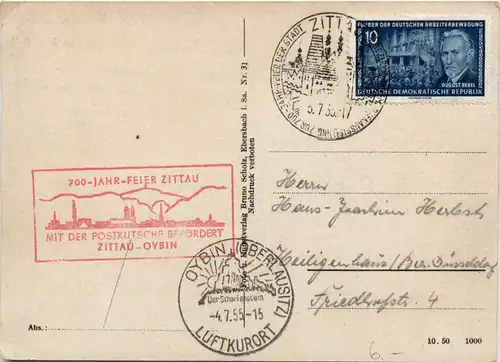 FÜHRER DER DEUTSCHEN ARBEITERBEWEGUNG
10
AUGUST BEBEL
DEUTSCHE DEMOKRATISCHE REPUBLIK
ZITTAU
700-JAHR-FEIER DER STADT
5.7.55.-17
700-JAHR-FEIER ZITTAU
MIT DER POSTKUTSCHE BEFÖRDERT
ZITTAU-OYBIN
OYBIN (OBERLAUSITZ)
Der Scharfenstein
-4.7.55-15
LUFTKURORT
verlag Bruno Scholz, Ebersbach i. Sa. Nr. 31
Nachdruck verboten
Herrn
Hans-Joachim Herbst
Heiligenhaus/Bez. Düsseldorf
Friedhofstr. 4
Abs.:
6.-
10.50 1000